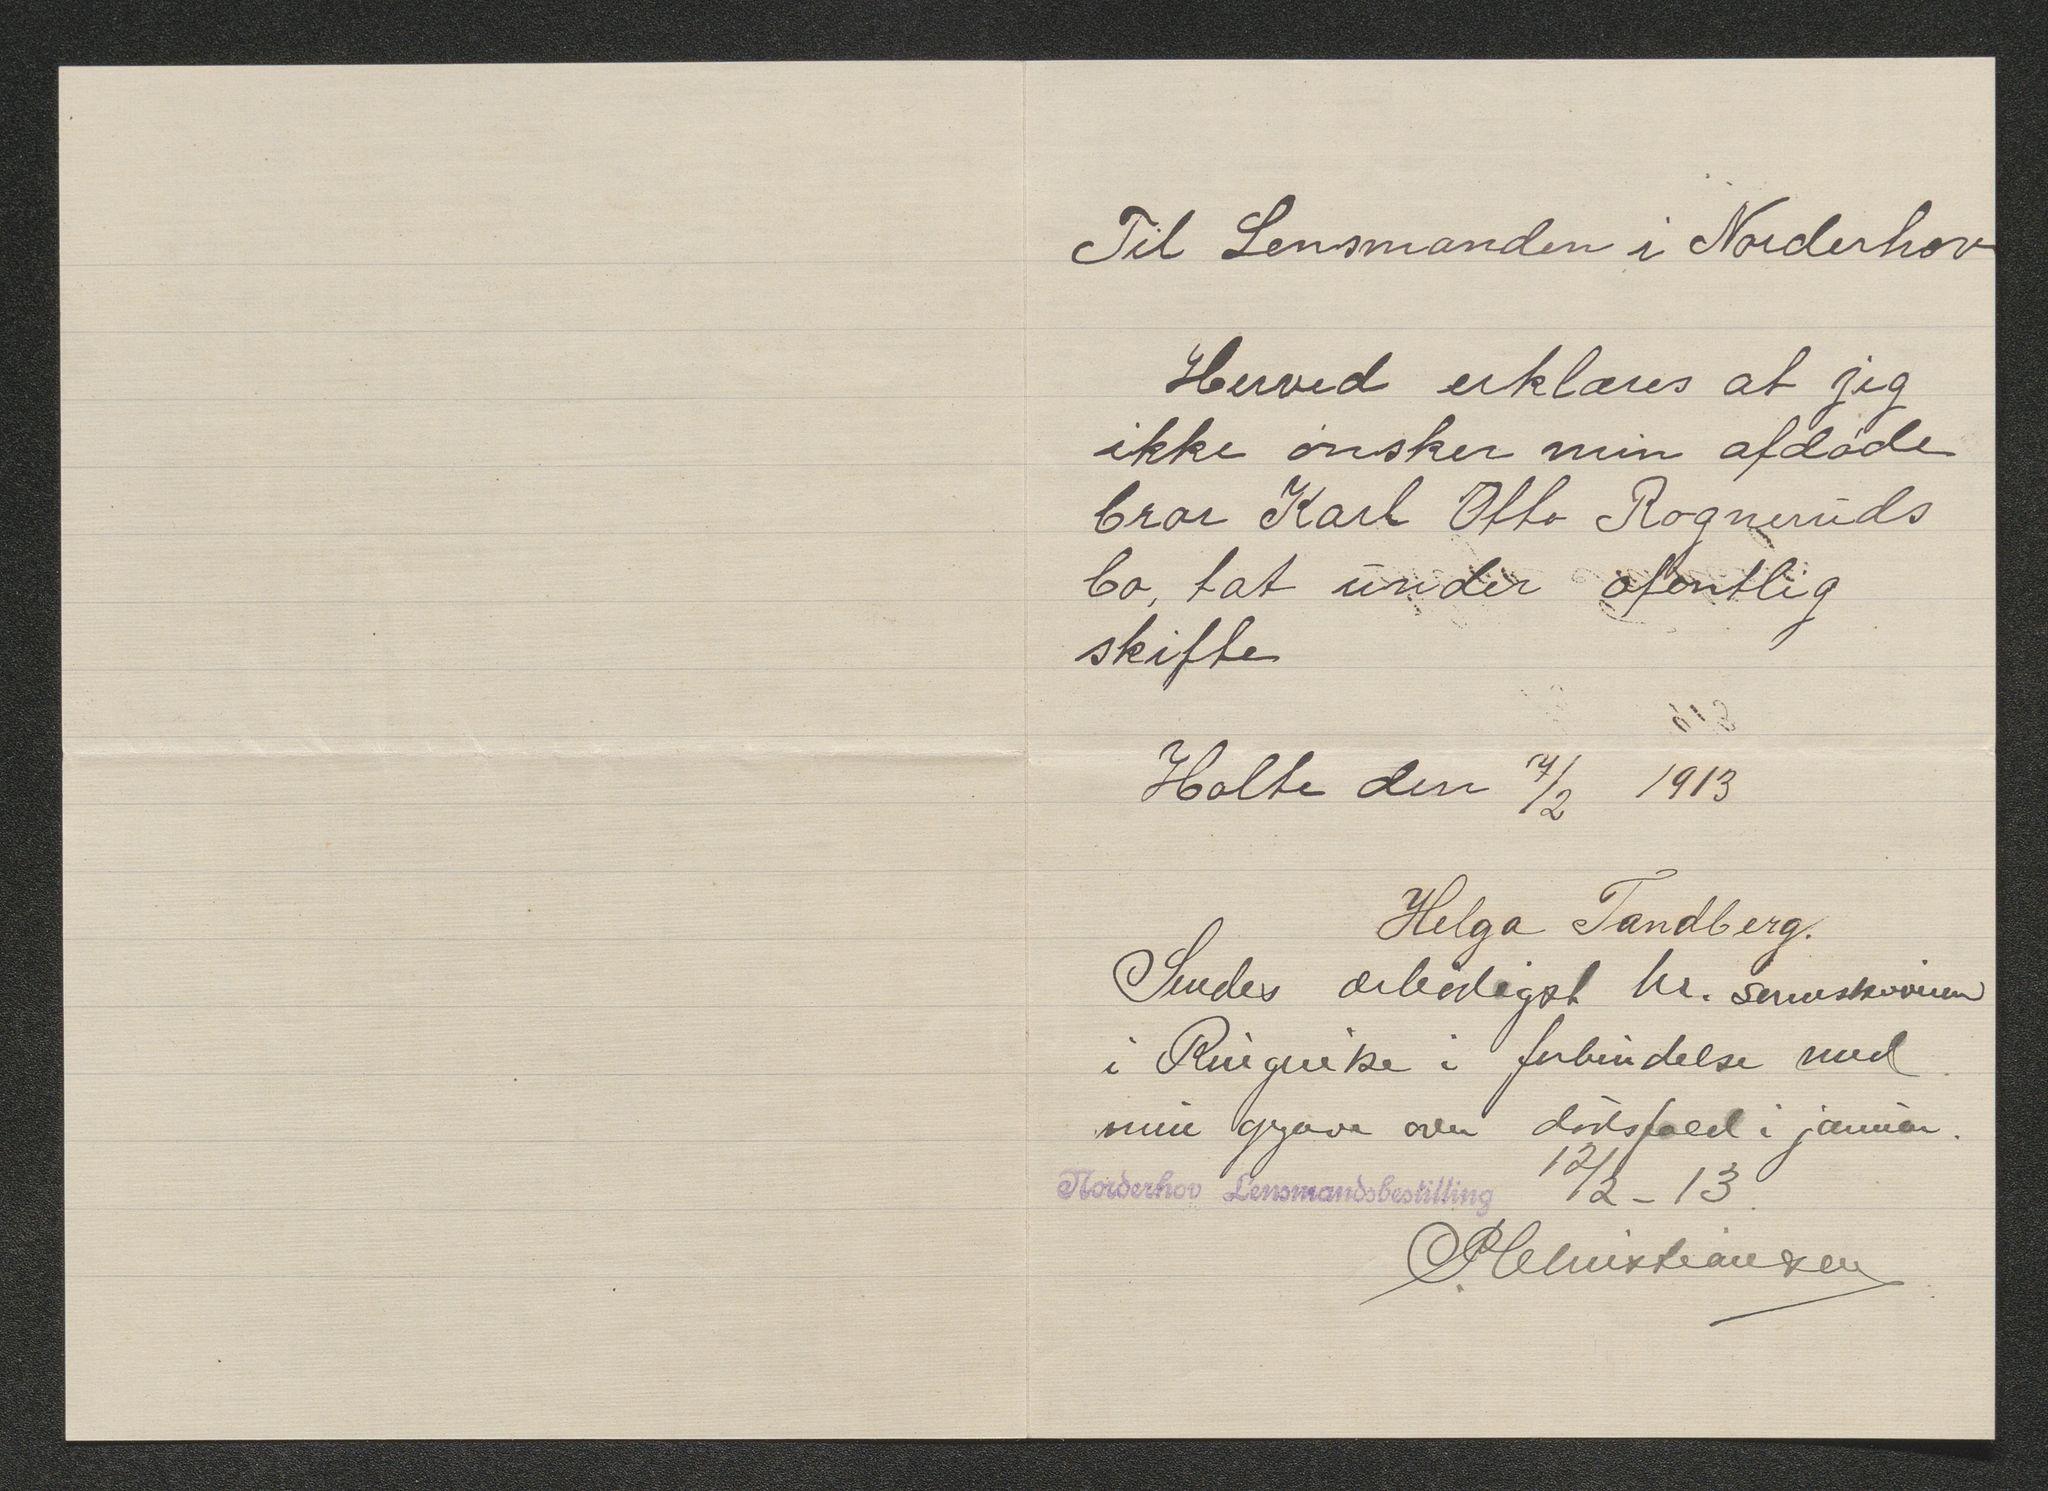 Til Lensmanden i Norderhov
Herved erklæres at jeg
ikke ønsker min afdøde
bror Karl Otto Rogneruds
bo, tat under ofentlig
skifte
Holte den 7/2 1913
Helga Tandberg.
Sendes ærbødigst hr. sorenskriveren
i Ringerike i forbindelse med
min opgave over dødsfald i januar.
Norderhov Lensmandsbestilling 12/2 - 13
Christiansen